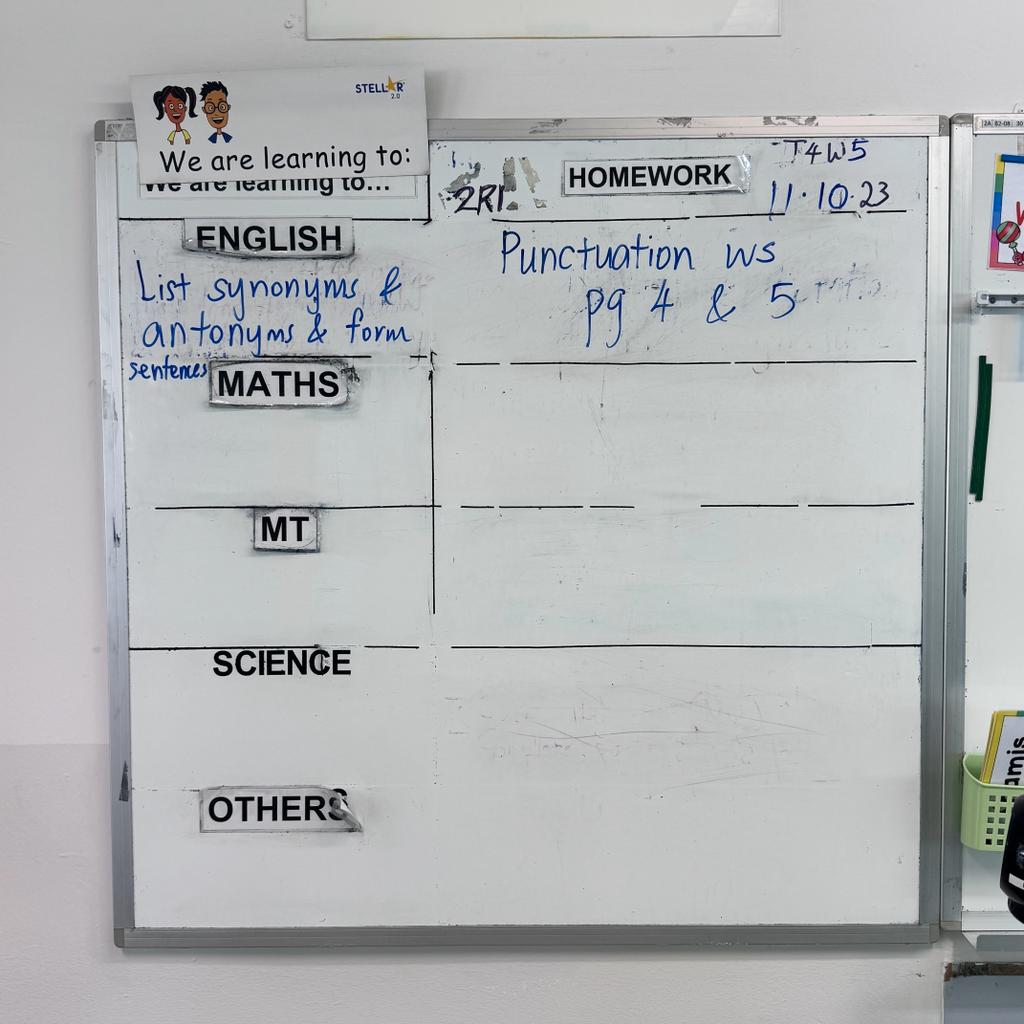 STELLAR
2.0
We are learning to:
We are learning to...
2R1
HOMEWORK
T4W5
11.10.23
ENGLISH
List synonyms &
antonyms & form
sentences
Punctuation ws
pg 4 & 5
MATHS
MT
SCIENCE
OTHERS
2A
amis